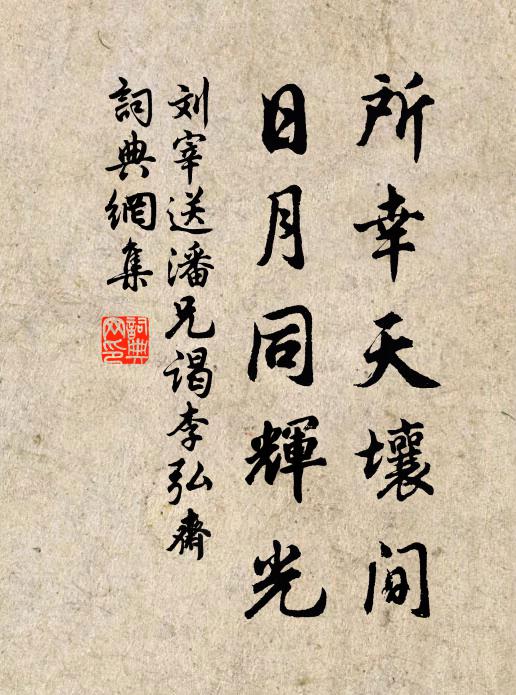 所幸天壤间
日月同輝光
刘宰送潘兄谒李弘齋
詞典網集
詞典网印